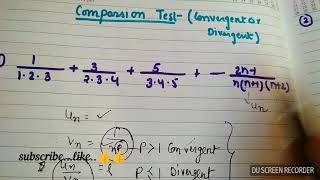 Comparsion Test - (Convergent or
Divergent)
(2)
1/1·2·3 + 3/2·3·4 + 5/3·4·5 + - 2n-1/n(n+1)(n+2)
un
un = ✓
vn = 1/nP P > 1 Convergent
P ≤ 1 Divergent
un/vn = l
subscribe..like..👍👍
DU SCREEN RECORDER